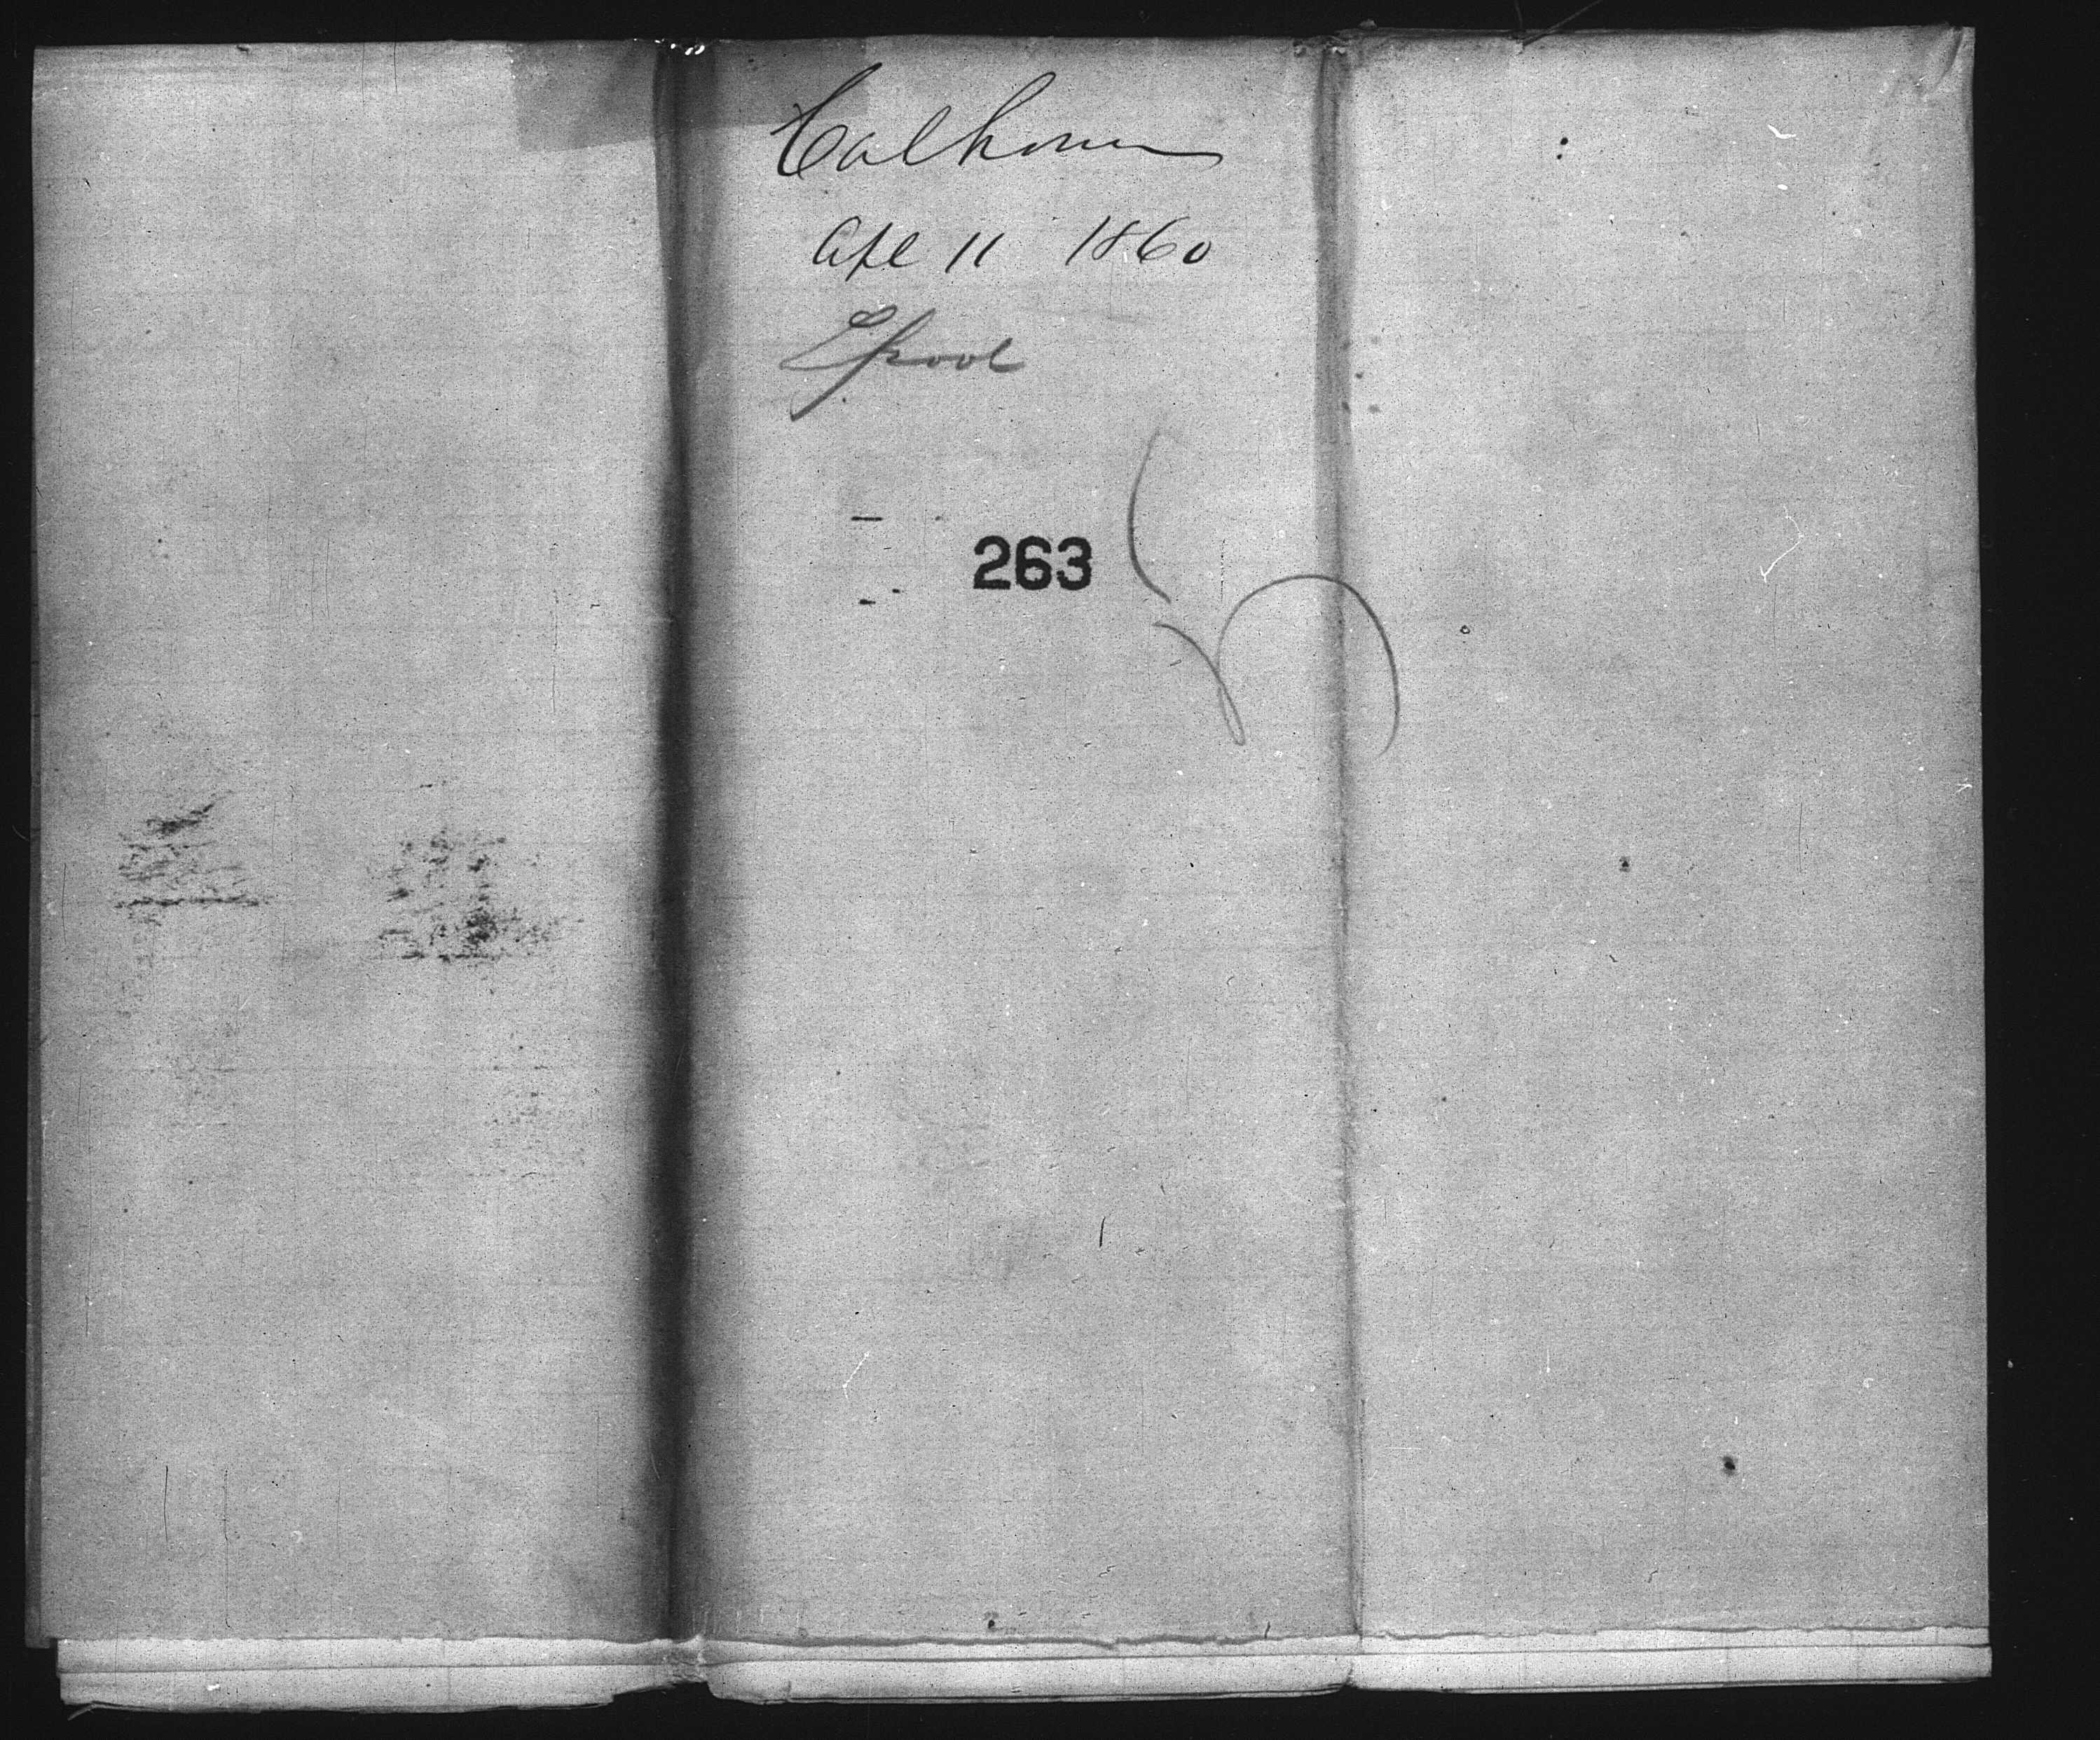 Calhoun
Apl 11 1860
Lpool
263